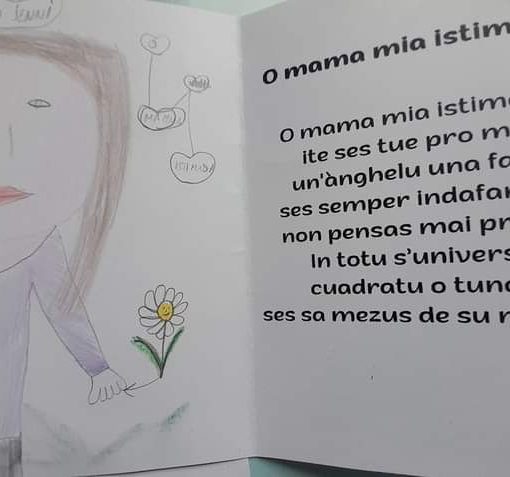 JENNI
O
MIA
MAMA
ISTIMADA
O mama mia istim
O mama mia istim
ite ses tue pro m
un'ànghelu una fa
ses semper indafar
non pensas mai pr
In totu s'univers
cuadratu o tund
ses sa mezus de su